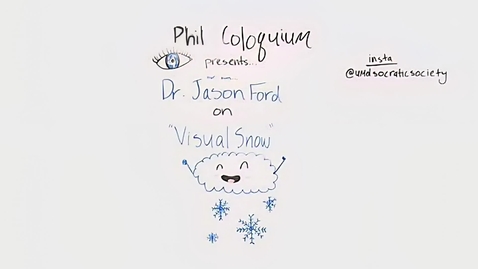 Phil Coloquium
presents...
Dr. Jason Ford
on
"Visual Snow"
insta
@umdsocraticsociety